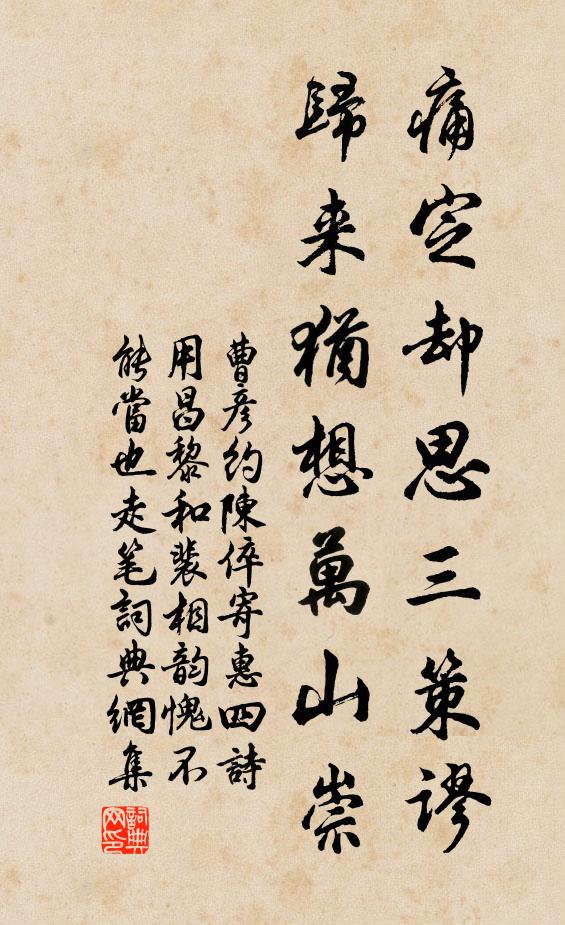 痛定却思三策謬
歸来猶想萬山崇
曹彦約陳倅寄惠四詩
用昌黎和裴相韵愧不
能當也走笔詞典網集
詞典网印